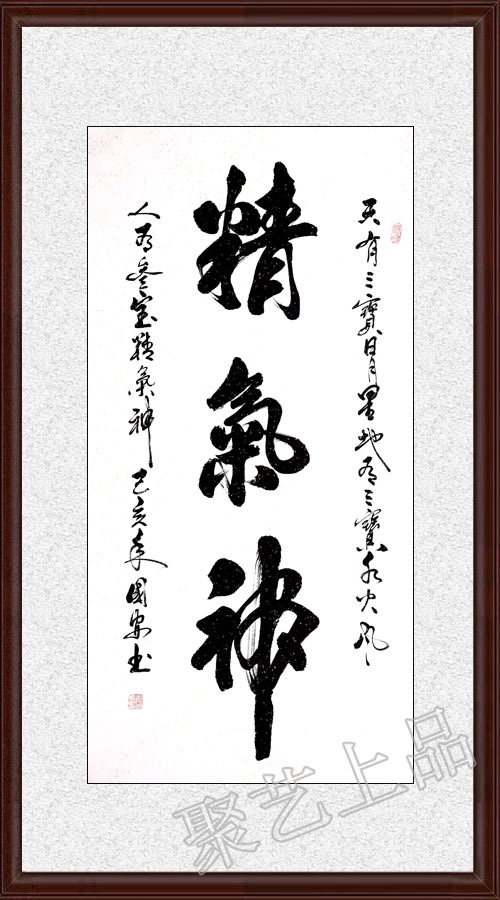 天有三寶日月星地有三寶水火風
精氣神
人有叁宝精氣神 己亥年 國安书
聚艺上品